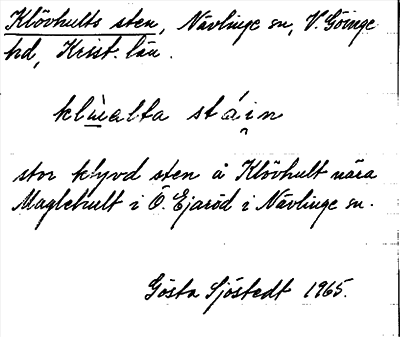 Klövhults sten, Nävlinge sn, V. Göinge
hd, Krist. län.
klu̱̇alta stá i̯n
stor klyvd sten å Klövhult nära
Maglehult i Ö. Ejaröd i Nävlinge sn.
Gösta Sjöstedt 1965.